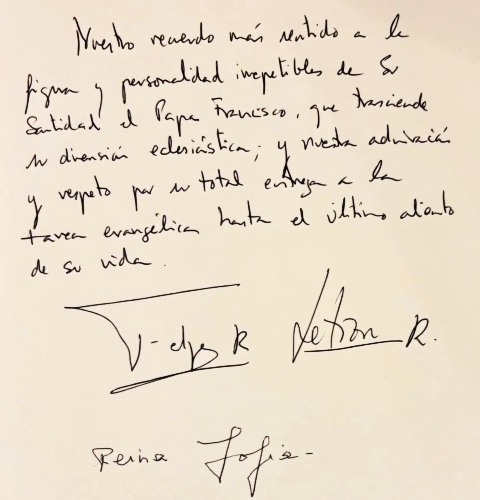 Nuestro recuerdo más sentido a la
figura y personalidad irrepetibles de Su
Santidad el Papa Francisco, que trasciende
su dimensión eclesiástica; y nuestra admiración
y respeto por su total entrega a la
tarea evangélica hasta el último aliento
de su vida.
Felipe R Letizia R.
Reina Sofía-